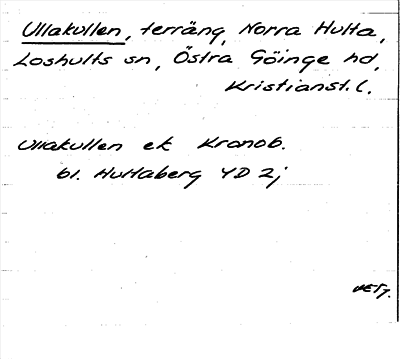 Ullakullen, terräng, Norra Hulta,
Loshults sn, Östra Göinge hd,
Kristianst. l.
Ullakullen ek Kronob.
bl. Hultaberg YD 2j